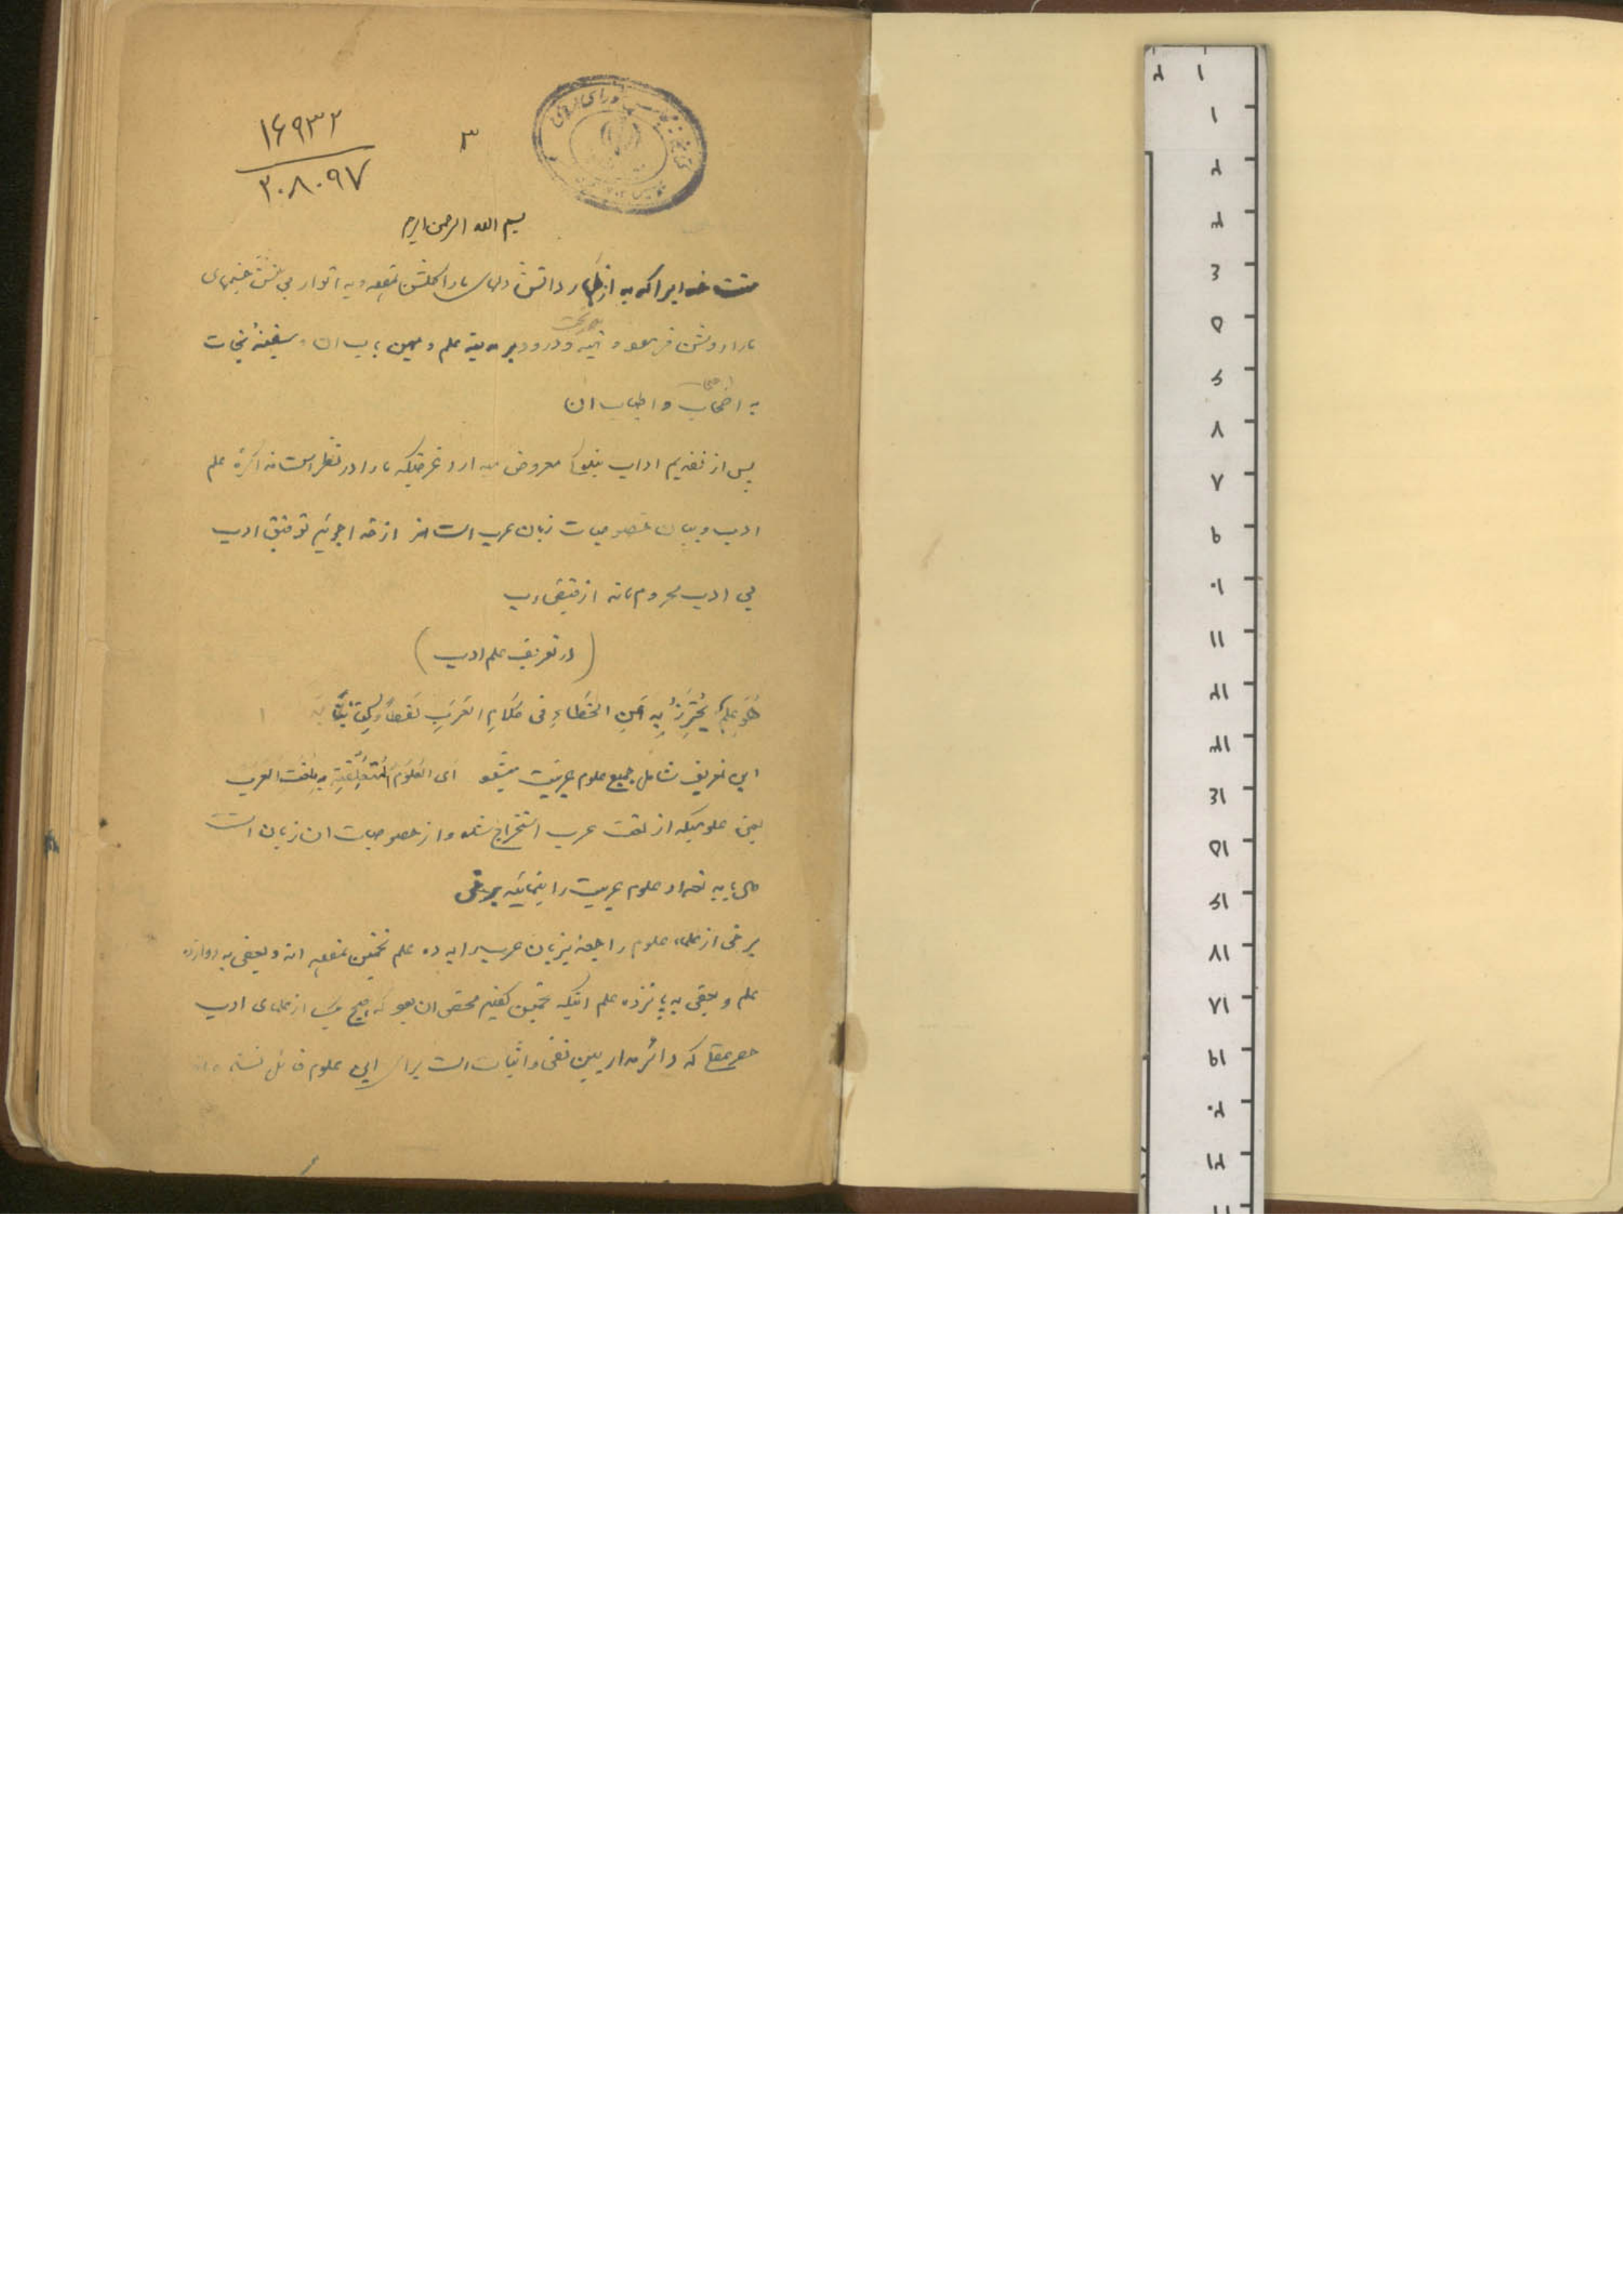 ۱۶۹۳۲
۲۰۸۰۹۷
۳
بسم الله الرحمن الرحیم
منت خدایرا که به ازهار دانش دلهای ما را گلشن نموده و به انوار بینش چشمهای
ما را روشن فرموده و درود بر مدینه علم و باب آن و سفینهٔ نجات
به اصحاب و احباب آن
پس از تقدیم آداب معروض میدارد غرضیکه ما را در نظر است مذاکرهٔ علم
ادب و بیان خصوصیات زبان عرب است از خدا جوئیم توفیق ادب
بی ادب محروم ماند از فیض رب
(در تعریف علم ادب)
هُوَ عِلمٌ یُحْتَرَزُ بِهِ عَنِ الخَطَاءِ فی کَلامِ العَرَبِ لَفظاً وَ کِتابَةً
این تعریف شامل جمیع علوم عربیت میشود ای العُلُومَ المُتَعَلِّقَةِ به لغت العرب
یعنی علومیکه از لغت عرب استخراج شده و از خصوصیات آن زبان است
حال باید تعداد علوم عربیت را بنمائیم برخی
برخی از علماء علوم راجعه بزبان عرب را به ده علم تخمین نموده اند و بعضی به دوازده
علم و بعضی به پانزده علم اینکه تخمین گفتیم محض آن بود که هیچ یک از علمای ادب
حصر عقلی که دائر مدار بین نفی و اثبات است برای این علوم قائل نشده اند